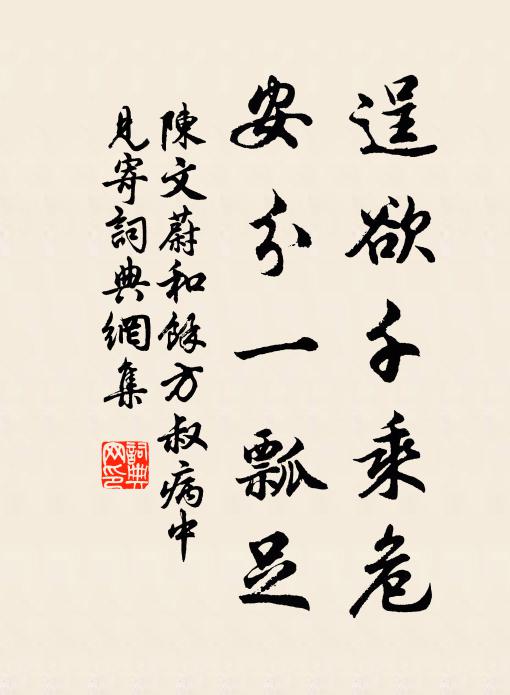 逞欲千乘危
安分一瓢足
陳文蔚和餘方叔病中
見寄詞典網集
詞典網印